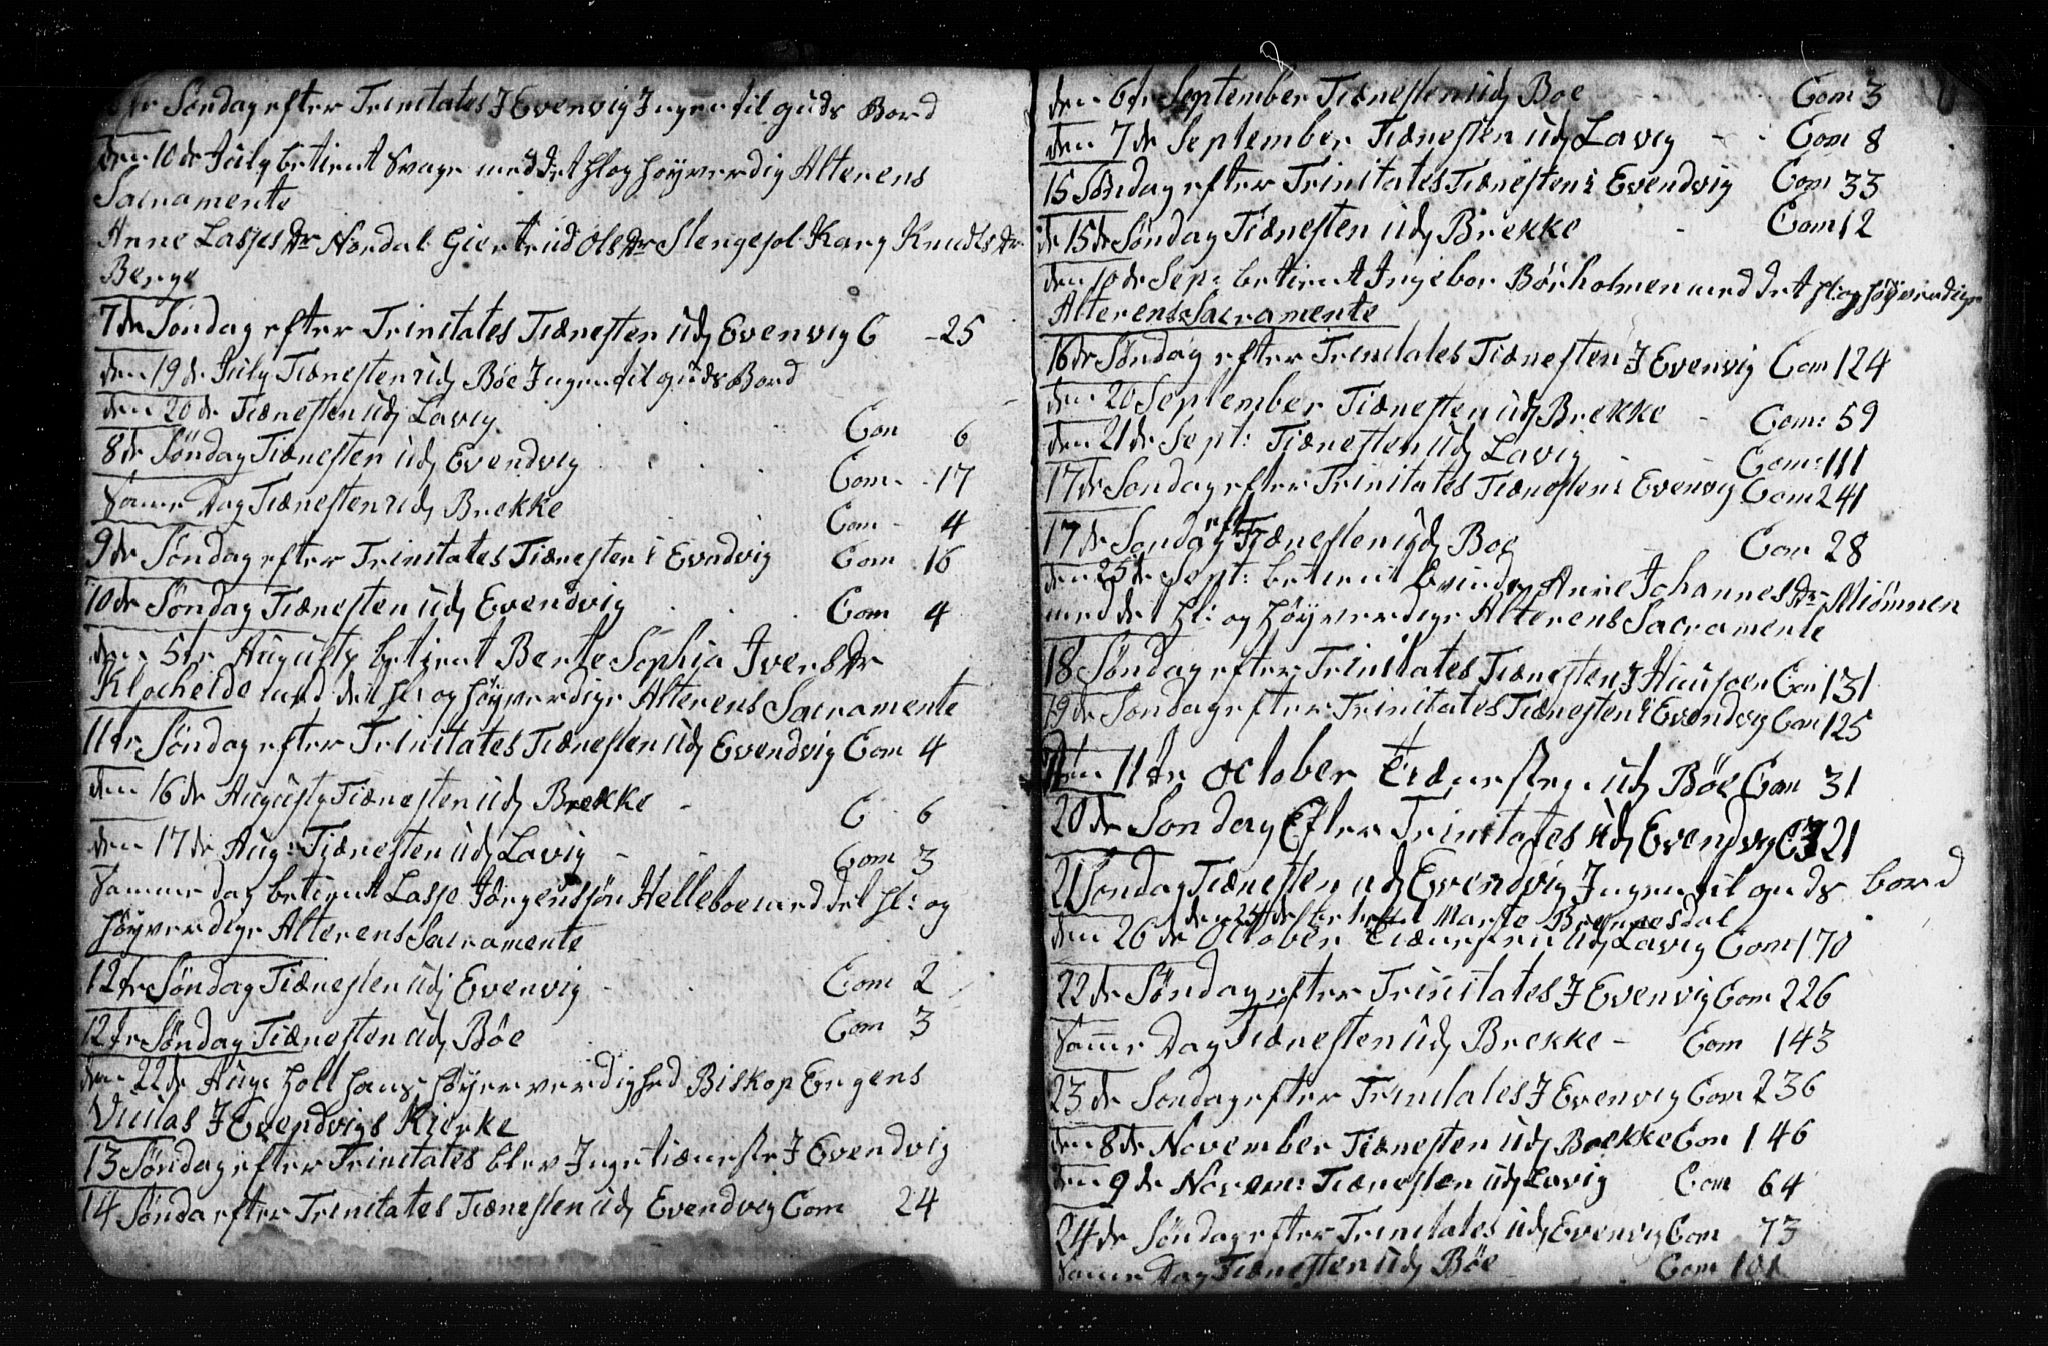 6te Søndag efter Trinitates J Evenvig Jngen til guds Bord
den 10de July betient Svage med det hl og høyverdig Alterens
Sacramente
Anne Lasses dr Nordal Giertrud Ols dr Slengesol Kary Knuds dr
Berge
7de Søndag efter Trinitates Tiænesten udj Evenvig C - 25
den 19de July Tiænesten udj Bøe Jngen til guds Bord
den 20de Tiænesten udj Lavig Con 6
8de Søndag Tiænesten udj Evendvig Com 17
Same Dag Tiænesten udj Brekke Com 4
9de Søndag efter Trinitates Tiænesten i Evndvig Com 16
10de Søndag Tiænesten udj Evendvig Com 4
den 5te Augusty betient Berte Sophia Jvers dr
Klocheide med det hl: og høyverdige Alterens Sacramente
11te Søndag efter Trinitates Tiænesten udj Evendvig Com 4
den 16de Augusty Tiænesten udj Brekke - C 6
den 17de Aug: Tiænesten udj Lavig - Com 3
Samme dag betient Lasse Jørgensøn Helleboe med det hl: og
høyverdige Alterens Sacramente
12te Søndag Tiænesten udj Evenvig - Com 2
12te Søndag Tiænesten udj Bøe Com 3
den 22de Aug: holt hans høyerverdighed Biskop Engens
J Evendvigs Kierke
13 Søndag efter Trinitates blev Jngen tiæneste J Evendvig
14 Sønda efter Trinitates Tiænesten udj Evendvig Com 24
den 6te September Tiænesten udj Boe Com 3
den 7de September Tiænesten udj Lavig - Com 8
15 Søndag efter Trinitates Tiænesten i Evendvig Com 33
d 15de Søndag Tiænesten udj Brekke - Com 12
den 10de Sep: betient Jngebor Børholmen med det hl og høyverdige
Alterens Sacramente
16de Søndag efter Trinitates Tiænesten J Evenvig Com 124
den 20 September Tiænesten udj Brekke - Com: 59
den 21de Sept: Tiænesten udj Lavig - Com: 111
17de Søndag efter Trinitates Tiænesten i Evenvig Com 241
17de Søndag eft Tiænesten udj Boe Com 28
den 25de Sept: betient Anne Johannes dr Miømnen
med det hl: og høyverdige Alterens Sacramente
18 Søndag efter Trinitates Tiænesten J Com 131
19de Søndag efter Trinitates Tiænesten i Evendvig Com 125
den 11te October Tiænesten udj Bøe Com 31
20de Søndag Efter Trinitates udj Evendvig C 321
21 Søndag Tiænesten udj Evendvig Jngen til guds bord
den 25de Marte Brennesdal
den 26de October Tiænesten udj Lavig Com 170
22de Søndag efter Trinitates J Evenvig Com 226
Same Dag Tiænesten udj Brekke - Com 143
23de Søndag efter Trinitates J Evenvig Com 236
den 8de November Tiænesten udj Brekke Com 146
den 9de Novem: Tiænesten udj Lavig Com 64
24de Søndag efter Trinitates udj Evenvig Com 73
Same Dag Tiænesten udj Bøe Com 101